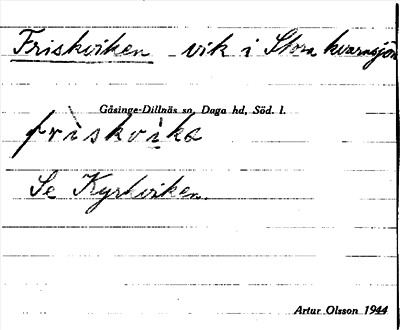 Friskviken vik i Stora kvarnsjön
Gåsinge-Dillnäs sn, Daga hd, Söd. l.
frìskvika
Se Kyrkviken.
Artur Olsson 1944